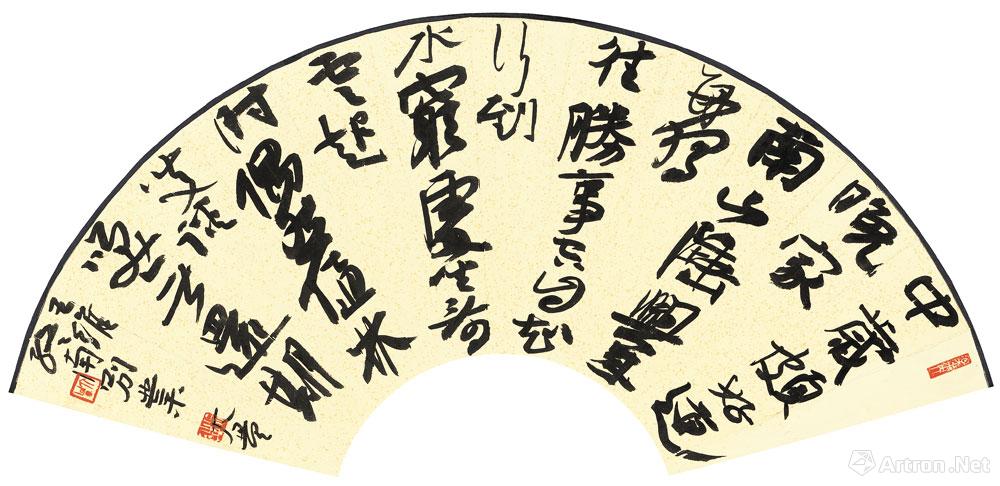 中歲頗好道
晚家
南山陲興來
每獨
往勝事空自知
行到
水窮處坐看
雲起
時偶然值林
叟談還期
王維
終南別業
Artron.Net